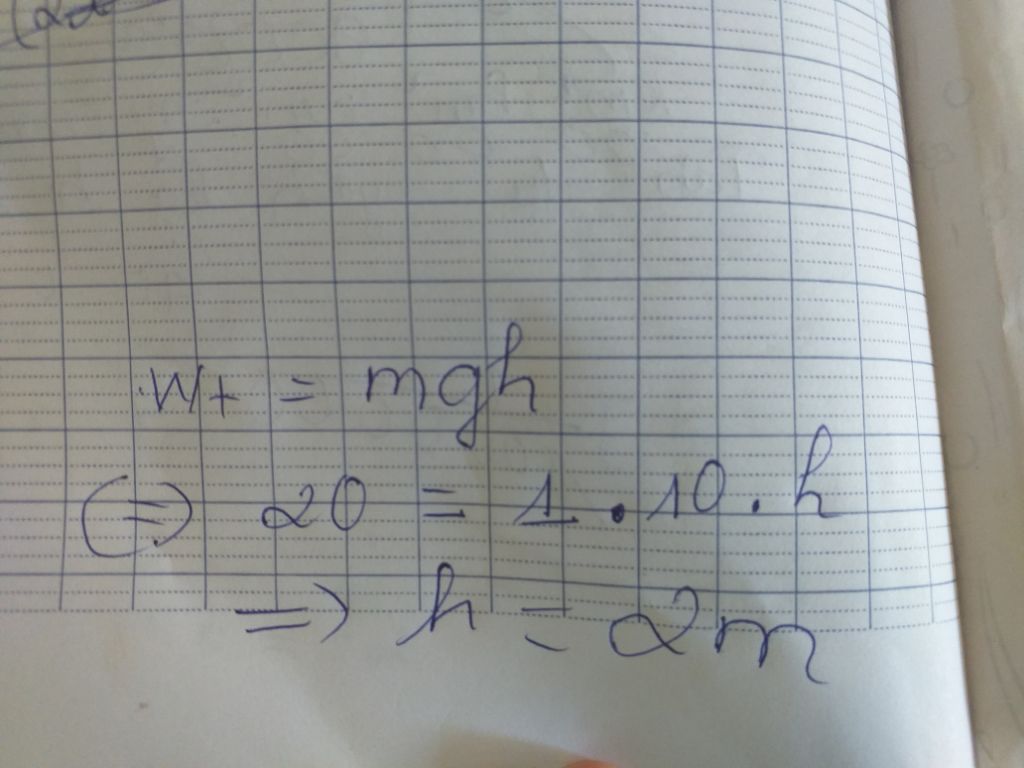 Wt = mgh
(=) 20 = 1 . 10 . h
=> h = 2m